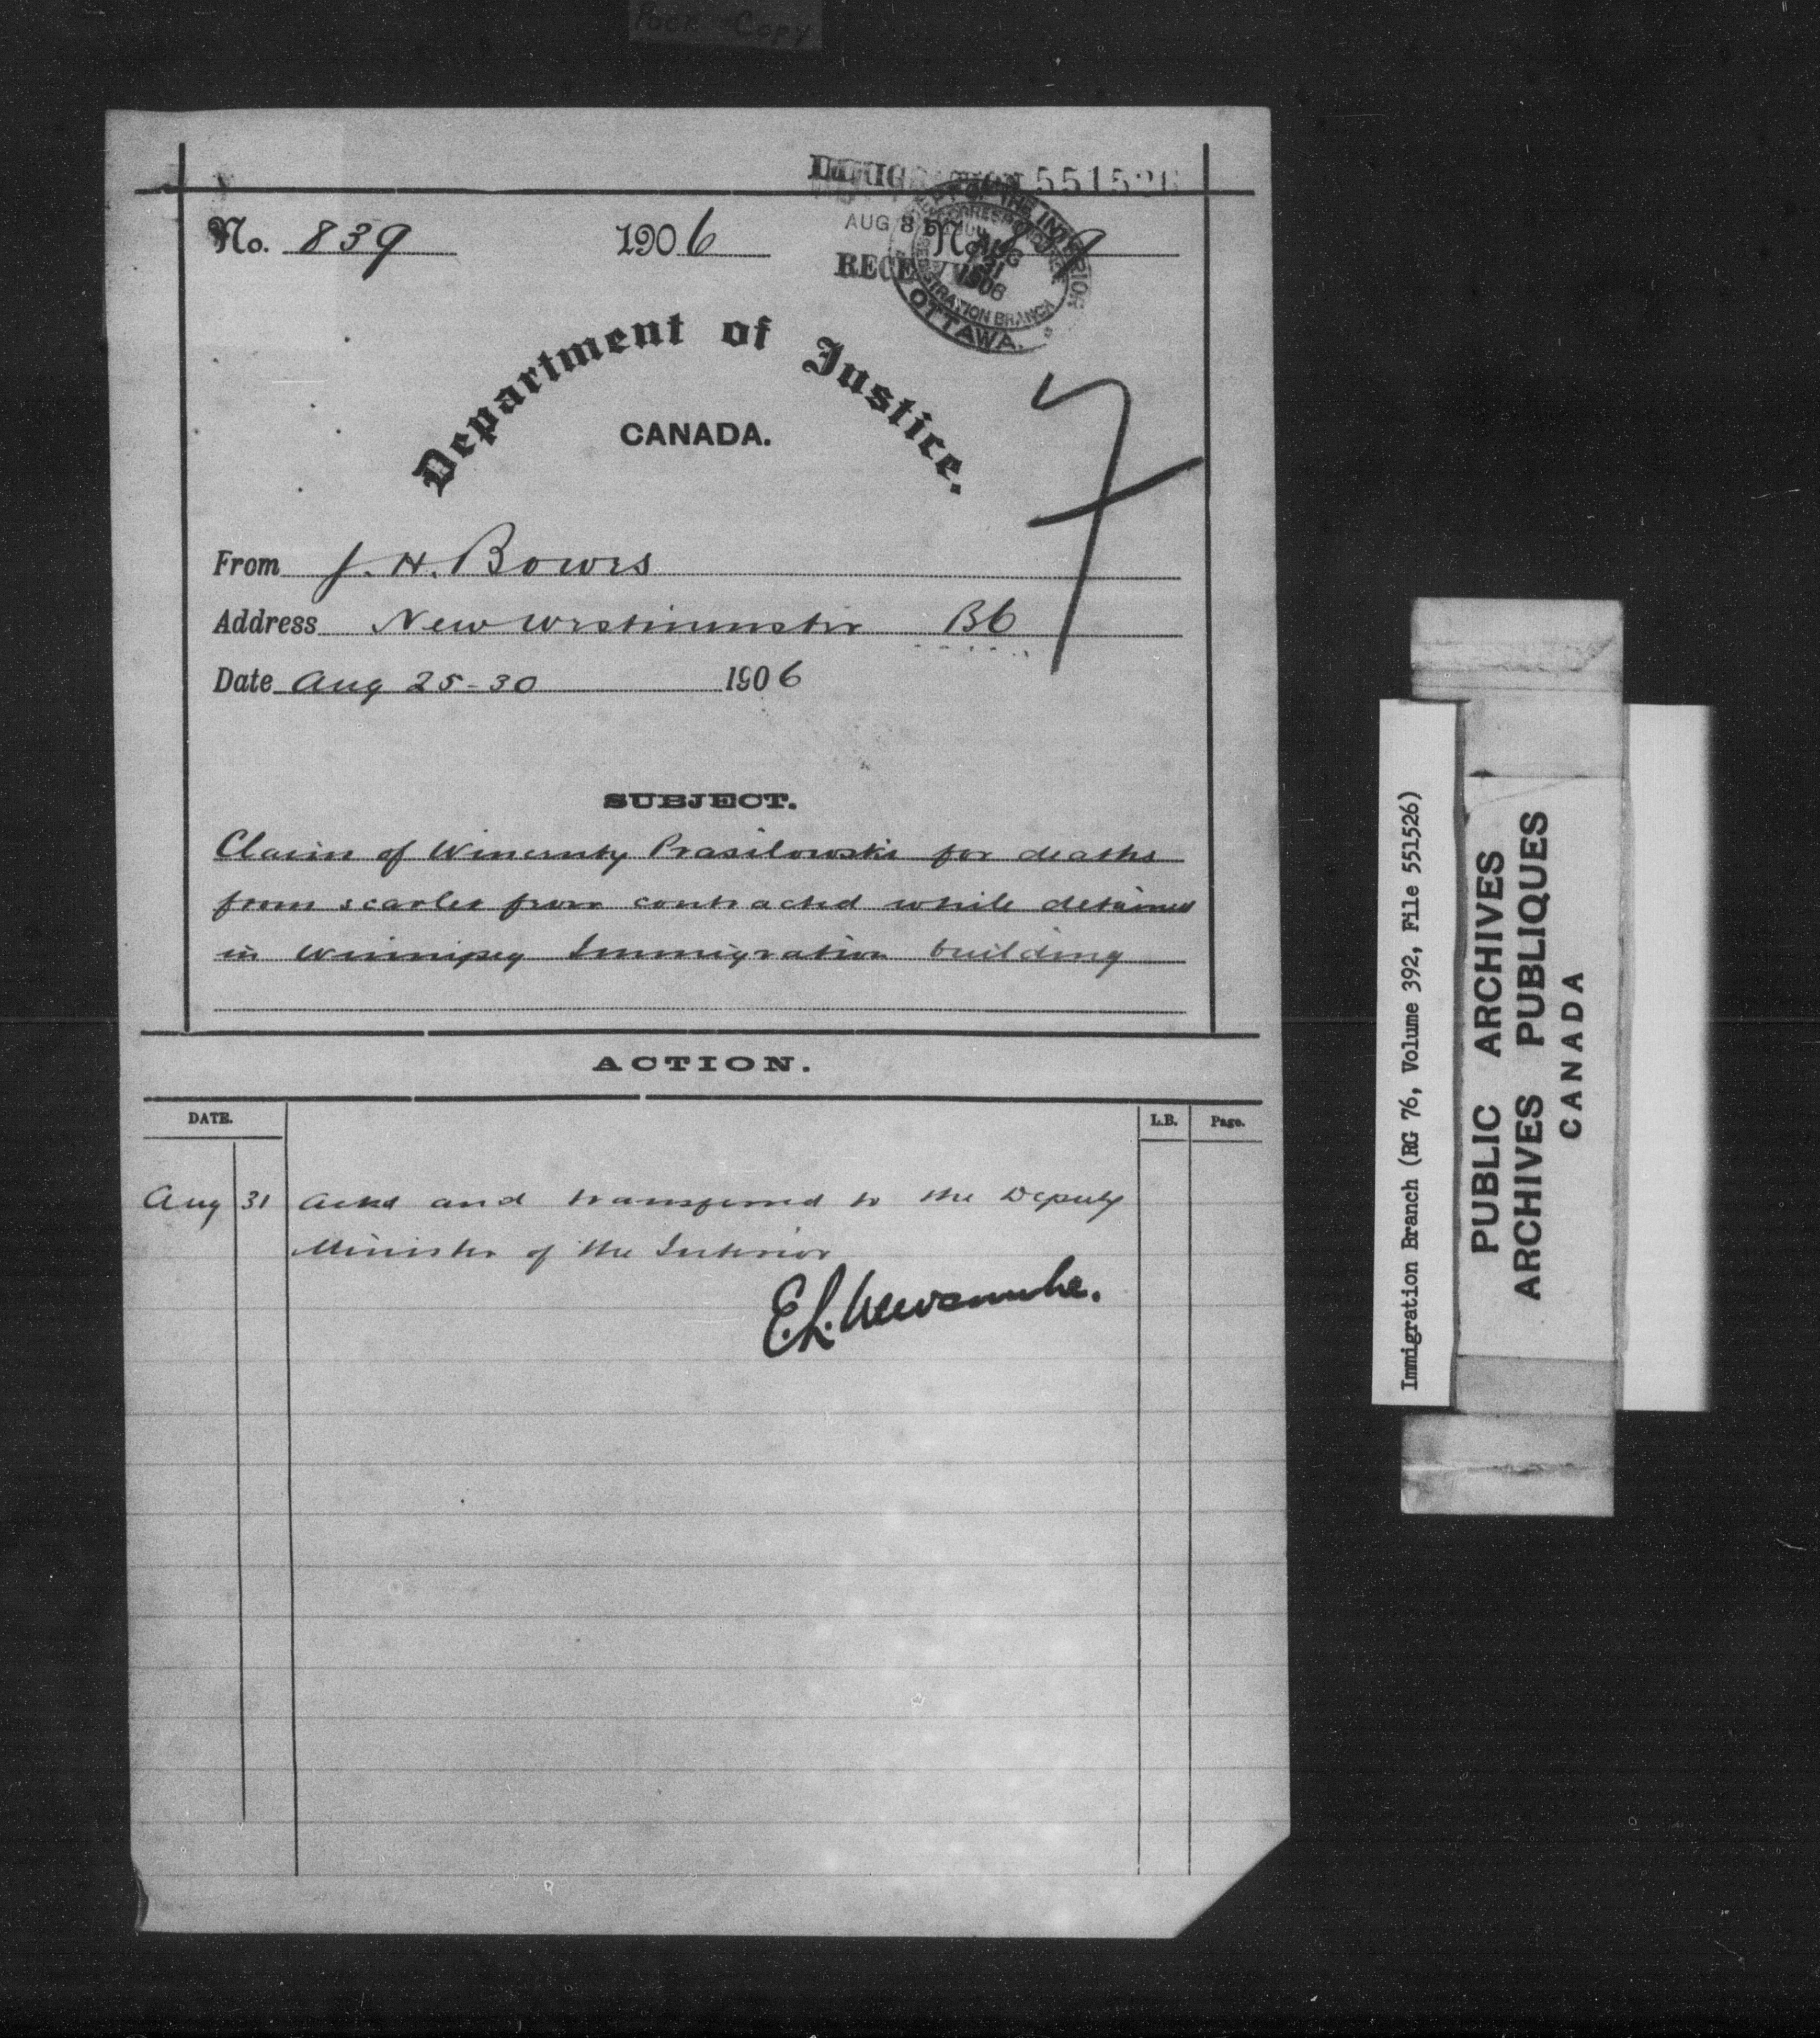 Poor Copy
IMMIGRATION 551526
No. 839 1906
AUG 31
No. 839
RECEIVED
DEPT OF THE INTERIOR
AUG
31
1906
REGISTRATION BRANCH
OTTAWA.
Department of Justice.
CANADA.
From J. H. Bowes
Address New Westminster BC
Date Aug 25-30 1906
SUBJECT.
Claim of Wincenty Prasilowski for deaths
from scarlet fever contracted while detained
in Winnipeg Immigration building
ACTION.
DATE. L.B. Page.
Aug 31 Ackd and transferred to the Deputy
Minister of the Interior
E.L. Newcombe.
Immigration Branch (RG 76, Volume 392, File 551526)
PUBLIC ARCHIVES
ARCHIVES PUBLIQUES
CANADA